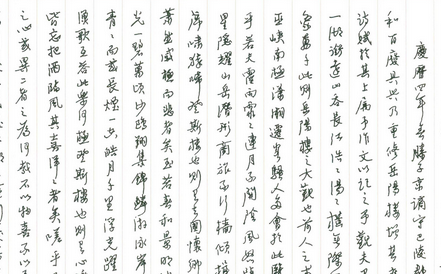 慶曆四年春滕子京謫守巴陵
和百廢具興乃重修岳陽樓增其舊
詩賦於其上屬予作文以記之予觀夫
一湖銜遠山吞長江浩浩湯湯橫無際
象萬千此則岳陽樓之大觀也前人之
巫峽南極瀟湘遷客騷人多會於此覽
乎若夫霪雨霏霏連月不開陰風怒
星隱耀山岳潛形商旅不行檣傾楫
虎嘯猿啼登斯樓也則有去國懷鄉
蕭然感極而悲者矣至若春和景明
光一碧萬頃沙鷗翔集錦鱗游泳岸
青青而或長煙一空皓月千里浮光躍
漁歌互答此樂何極登斯樓也則有心
皆忘把酒臨風其喜洋洋者矣嗟乎
之心或異二者之為何哉不以物喜不以